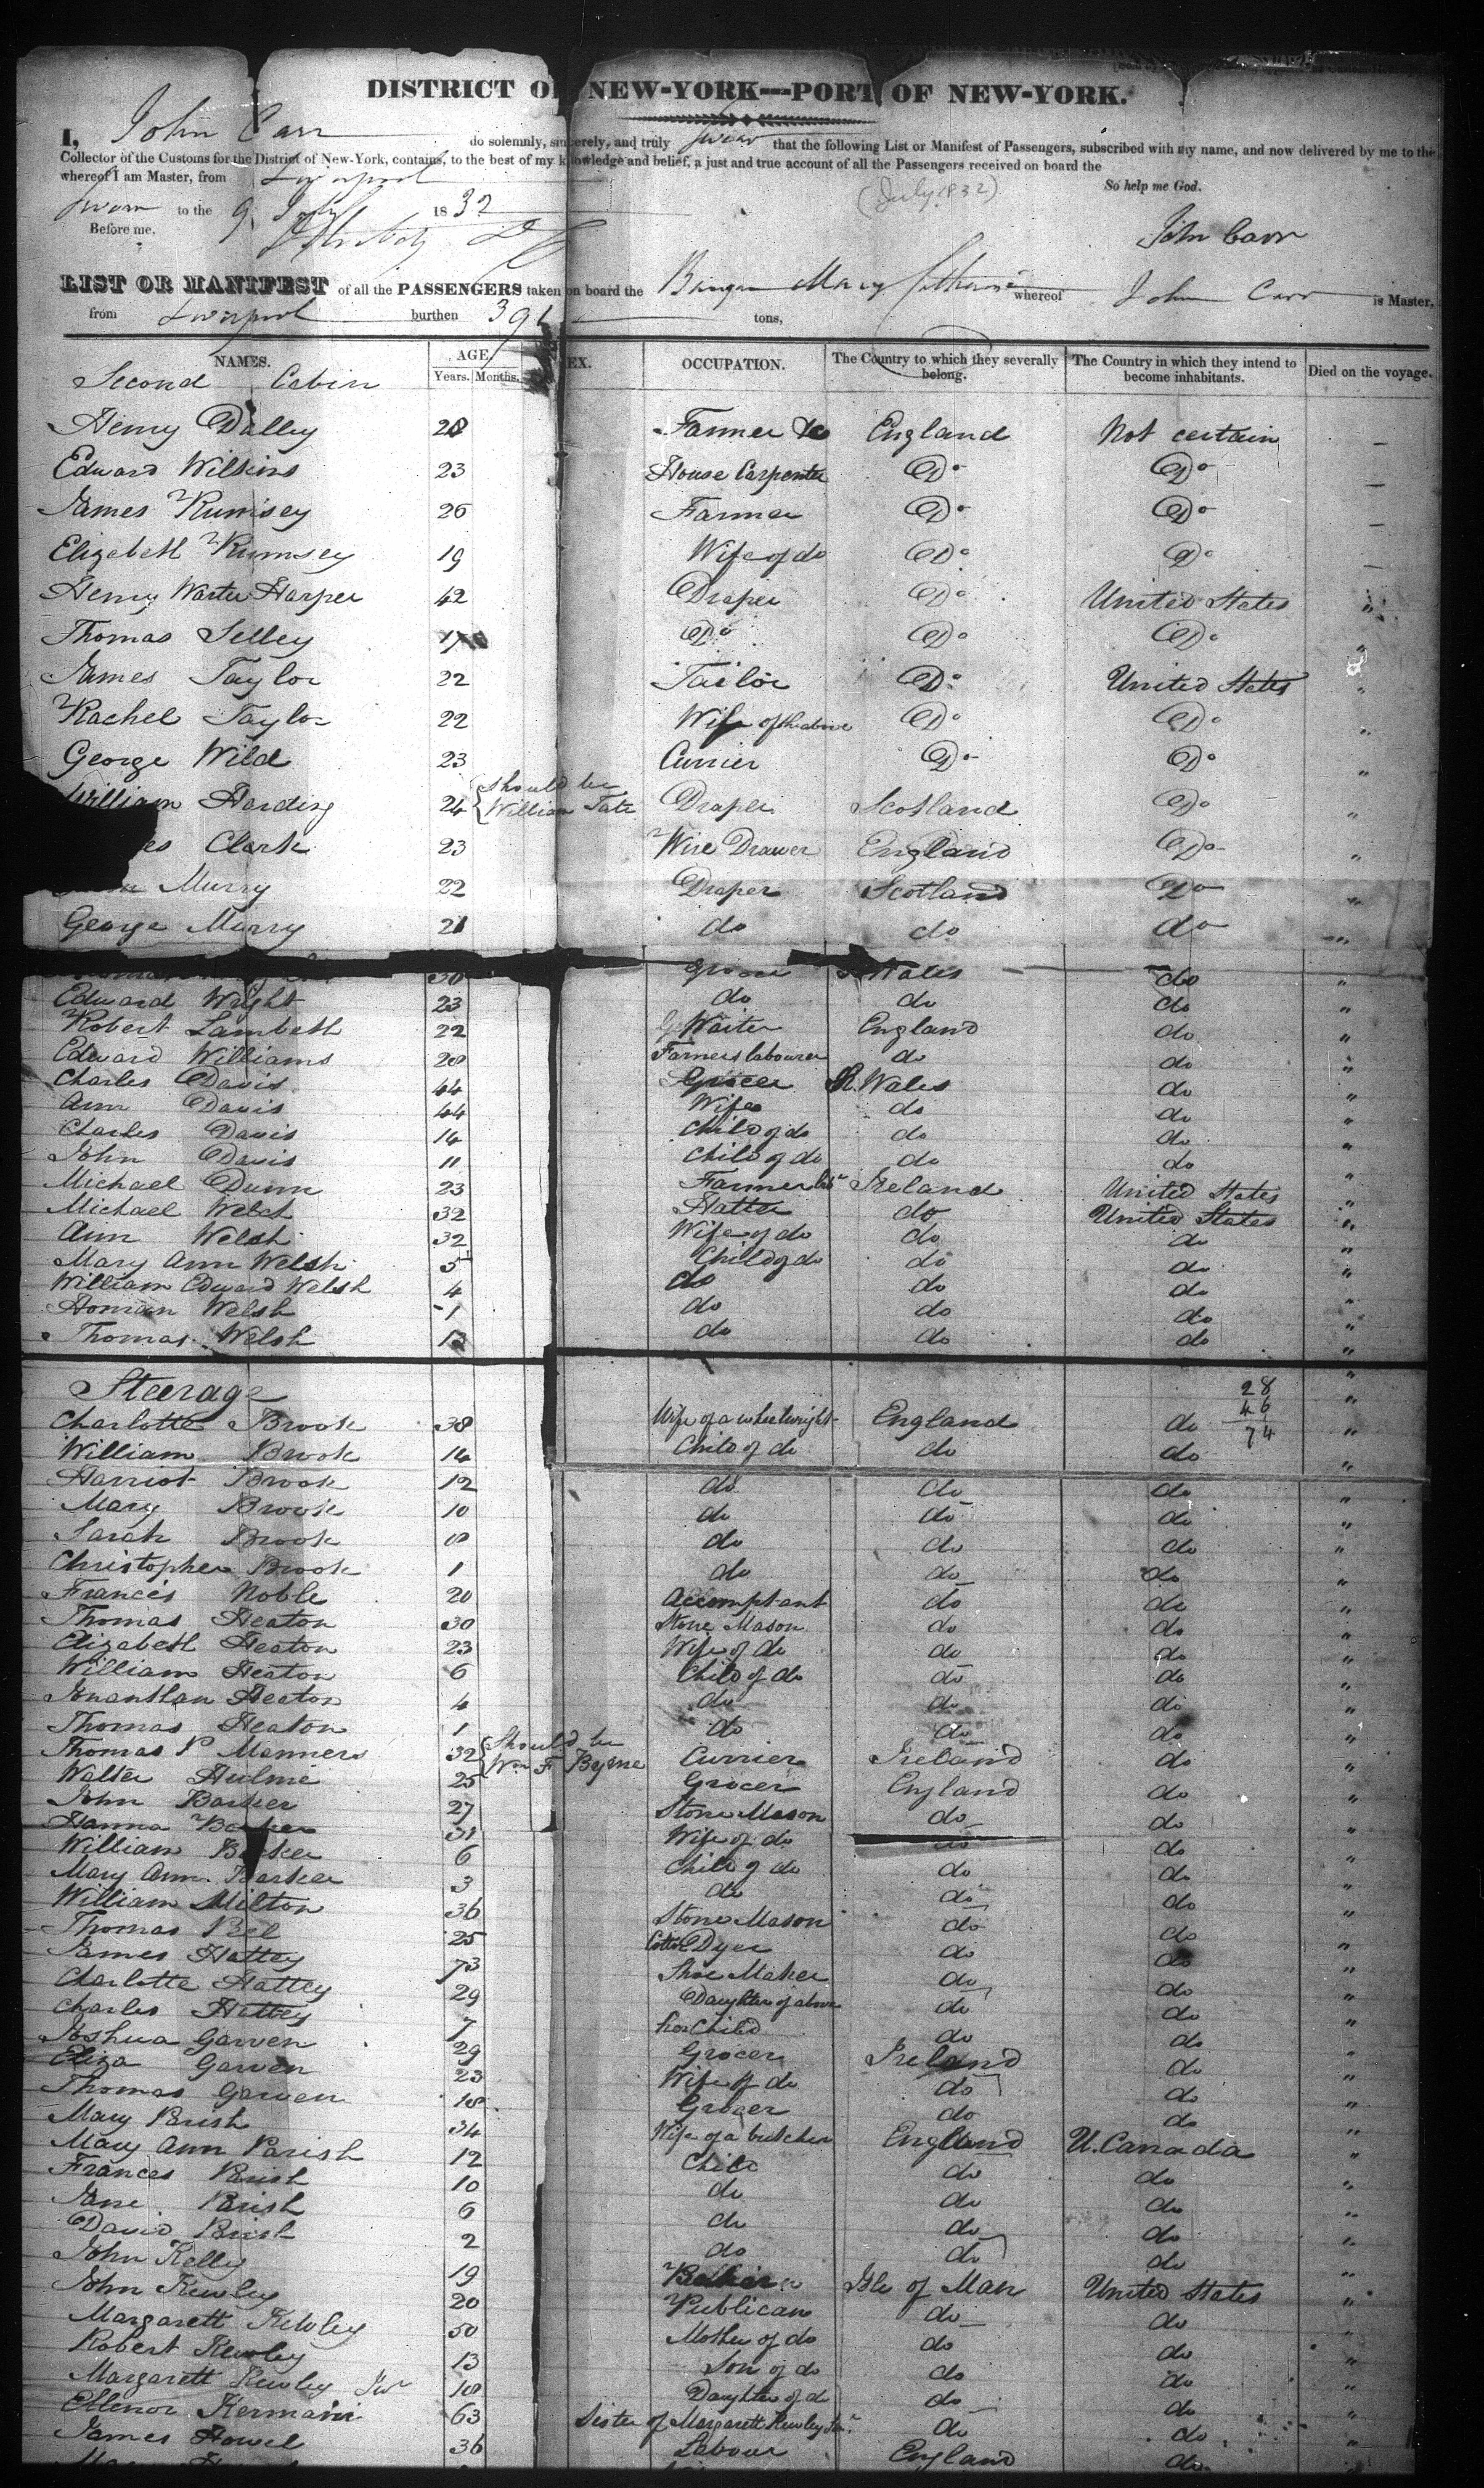 DISTRICT OF NEW-YORK---PORT OF NEW-YORK.
I, John Carr do solemnly, sincerely, and truly swear that the following List or Manifest of Passengers, subscribed with my name, and now delivered by me to the
Collector of the Customs for the District of New-York, contains, to the best of my knowledge and belief, a just and true account of all the Passengers received on board the
whereof I am Master, from Liverpool
So help me God.
(July 1832)
Sworn to the 9 July 1832
Before me,
John Carr
LIST OR MANIFEST of all the PASSENGERS taken on board the Mary Catherine whereof John Carr is Master,
from Liverpool burthen 391 tons,
NAMES. AGE. Years. Months. SEX. OCCUPATION. The Country to which they severally belong. The Country in which they intend to become inhabitants. Died on the voyage.
Second Cabin
Henry Dalley 28 Farmer England Not certain
Edward Wilkins 23 House Carpenter Do Do
James Rumsey 26 Farmer Do Do
Elizabeth Rumsey 19 Wife of do Do Do
Henry Harper 42 Draper Do United States "
Thomas Selley Do Do Do "
James Taylor 22 Tailor Do United States "
Rachel Taylor 22 Wife of the above Do Do "
George Wild 23 Currier Do Do "
William Harding 24 {should be William Tate Draper Scotland Do "
Clark 23 Wire Drawer England Do "
Murry 22 Draper Scotland Do "
George Murry 21 do do do "
30 Grocer Wales do "
Edward Wright 23 do do do "
Robert Lambeth 22 Waiter England do "
Edward Williams 20 Farmers labourer do do "
Charles Davis 44 Grocer Wales do "
Ann Davis 44 Wife do do "
Charles Davis 14 Child of do do do "
John Davis 11 Child of do do do "
Michael Dunn 23 Farmer Ireland United States "
Michael Welsh 32 Hatter do United States "
Ann Welsh 32 Wife of do do do "
Mary Ann Welsh 5 Child of do do do "
William Edward Welsh 4 do do do "
Welsh 1 do do do "
Thomas Welsh 13 do do do "
Steerage
28
46
74
Charlotte Brook 38 Wife of a wheelwright England do "
William Brook 14 Child of do do do "
Harriot Brook 12 do do do "
Mary Brook 10 do do do "
Sarah Brook 8 do do do "
Christopher Brook 1 do do do "
Francis Noble 20 Accomptant do do "
Thomas Heaton 30 Stone Mason do do "
Elizabeth Heaton 23 Wife of do do do "
William Heaton 6 Child of do do do "
Jonanthan Heaton 4 do do do "
Thomas Heaton 1 do do do "
Thomas P Manners 32 {Should be Wm F Byrne Currier Ireland do "
Walter Hulme 25 Grocer England do "
John Barker 27 Stone Mason do do "
Hanna Barker 31 Wife of do do do "
William Barker 6 Child of do do do "
Mary Ann Barker 3 do do do "
William Milton 36 Stone Mason do do "
Thomas Peel 25 Dyer do do "
James Hattey 73 Shoe Maker do do "
Charlotte Hattey 29 Daughter of above do do "
Charles Hattey 7 her Child do do "
Joshua Garven 29 Grocer Ireland do "
Eliza Garven 23 Wife of do do do "
Thomas Garven 18 Grocer do do "
Mary Parish 34 Wife of a butcher England U. Canada "
Mary Ann Parish 12 Child do do "
Frances Parish 10 do do do "
Jane Parish 6 do do do "
David Parish 2 do do do "
John Kelly 19 Isle of Man United States "
John Kewley 20 Publican do do "
Margarett Kewley 50 Mother of do do do "
Robert Kewley 13 Son of do do do "
Margarett Kewley Junr 10 Daughter of do do do "
Ellenor Kermain 63 Sister of Margarett Kewley Senr. do do "
James Howel 36 Labour England do